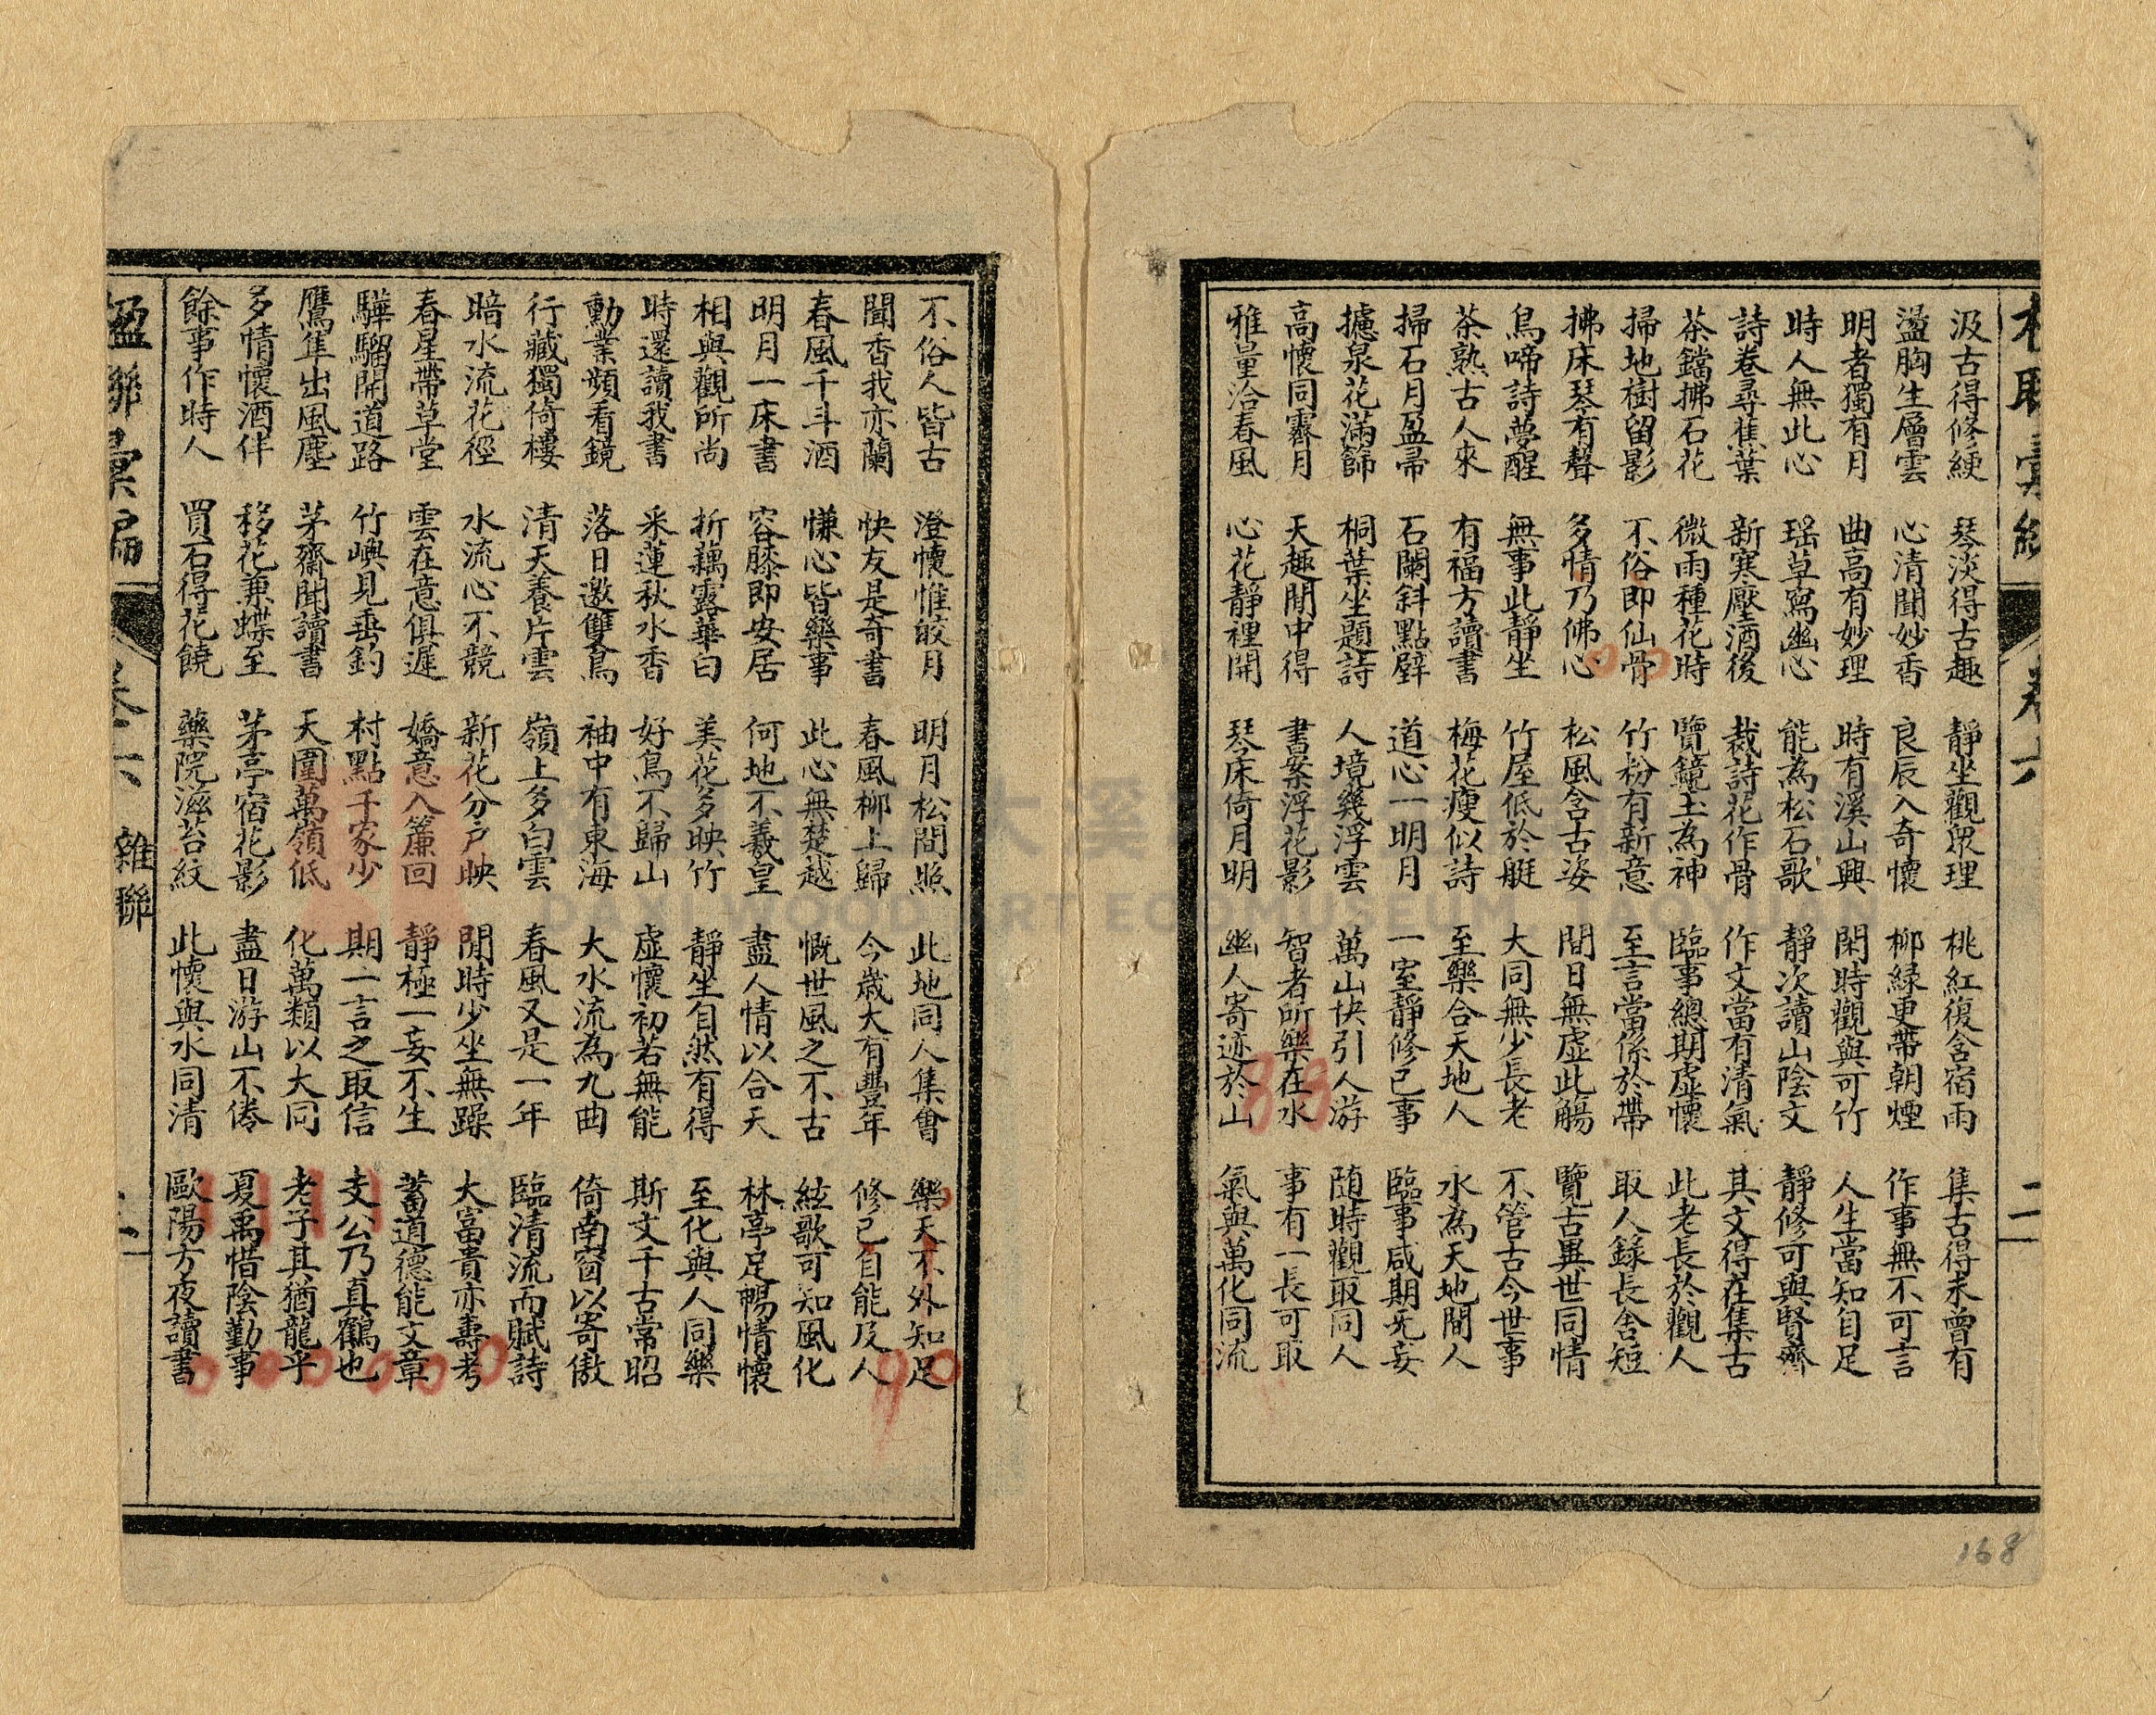 汲古得修綆 琴淡得古趣 靜坐觀眾理 桃紅復含宿雨 集古得未曾有
盪胸生層雲 心清聞妙香 良辰入奇懷 柳緑更帶朝煙 作事無不可言
明者獨有月 曲高有妙理 時有溪山興 閑時觀與可竹 人生當知自足
時人無此心 瑶草寫幽心 能為松石歌 靜次讀山陰文 靜修可與賢齊
詩卷尋蕉葉 新寒壓酒後 裁詩花作骨 作文當有清氣 其文得在集古
茶鐺拂石花 微雨種花時 覽鏡玉為神 臨事總期虛懷 此老長於觀人
掃地樹留影 不俗即仙骨 竹粉有新意 至言當係於帶 取人錄長舍短
拂床琴有聲 多情乃佛心 松風含古姿 間日無虛此觴 覽古異世同情
鳥啼詩夢醒 無事此靜坐 竹屋低於艇 大同無少長老 不管古今世事
茶熟古人來 有福方讀書 梅花瘦似詩 至樂合天地人 水為天地間人
掃石月盈帚 石闌斜點 道心一明月 一室靜修己事 臨事咸期无妄
攄泉花滿篩 桐葉坐題詩 人境幾浮雲 萬山快引人游 随時觀取同人
高懷同霽月 天趣閒中得 書案浮花影 智者所樂在水 事有一長可取
雅量洽春風 心花靜裡開 琴床倚月明 幽人寄迹於山 氣與萬化同流
卷六 二
168
不俗人皆古 澄懷惟皎月 明月松間照 此地同人集會 樂天不外知足
聞香我亦蘭 快友是奇書 春風柳上歸 今歲大有豐年 修己自能及人
春風千斗酒 慊心皆樂事 此心無楚越 慨世風之不古 絃歌可知風化
明月一床書 容膝即安居 何地不羲皇 盡人情以合天 林亭足暢情懷
相與觀所尚 折藕露華白 美花多映竹 靜生自然有得 至化與人同樂
時還讀我書 采蓮秋水香 好鳥不歸山 虛懷初若無能 斯文千古常昭
勳業頻看鏡 落日邀雙鳥 袖中有東海 大水流為九曲 倚南窗以寄傲
行藏獨倚樓 清天養片雲 嶺上多白雲 春風又是一年 臨清流而賦詩
暗水流花徑 水流心不競 新花分戶映 閒時少坐無躁 大富貴亦壽考
春星帶草堂 雲在意俱遲 嬌意入簾回 靜極一妄不生 蓄道德能文章
驊騮開道路 竹嶼見垂釣 村點千家少 期一言之取信 支公乃真鶴也
鷹隼出風塵 茅齋聞讀書 天圍萬嶺低 化萬類以大同 老子其猶龍乎
多情懷酒伴 移花兼蝶至 茅亭宿花影 盡日游山不倦 夏禹惜陰勤事
餘事作時人 買石得花饒 藥院滋苔紋 此懷與水同清 歐陽方夜讀書
楹聯彙編 卷六 雜聯
DAXI WOOD ART ECOMUSEUM TAOYUAN